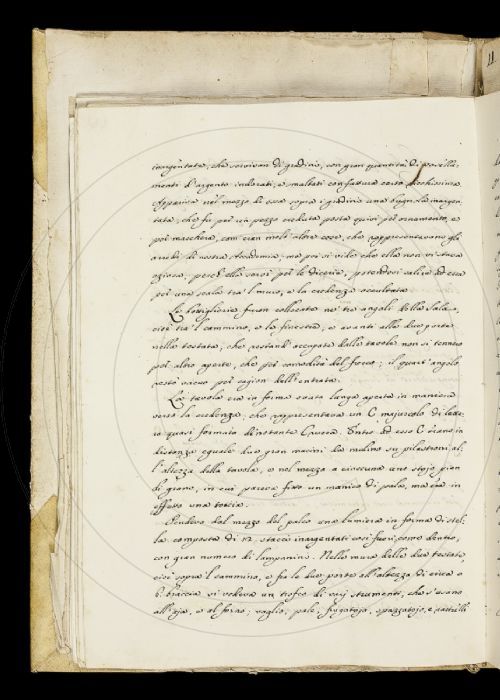 inargentata, che servivan di gradino, con gran quantità di vasella-
menti d'argento indorati, e smaltati con fattura certo
Appariva nel mezzo di essa sopra i gradini una bugnola inargen
tata, che fu per un pezzo creduta posta quivi per ornamento, e
poi macchina, com'eran molt'altre cose, che rappresentavano gli
arredi di nostra Accademia, ma poi si vide che ella non vi stava
oziosa, perch'ella servì per le dicerie, potendovi salire ad essa
per una scala tra'l muro, e la credenza occultata.
Le bottiglierie furon collocate ne' tre angoli della Sala,
cioè tra'l cammino, e la finestra, e avanti alle due porte
nelle testate, che restand'occupate dalle tavole non si tennero
per altro aperte, che per comodità del fresco; il quart'angolo
restò vacuo per cagion dell'entrata.
La tavola era in forma ovata lunga aperta in maniera
verso la credenza, che rappresentava un C majuscolo di lette
ra quasi formato Entro ad esso C erano in
distanza eguale due gran macini da mulino su pilastroni al-
l'altezza della tavola, e nel mezzo a ciascuna uno stajo pien
di grano, in cui pareva fitto un manico di pala, ma era in
effetto una torcia.
Pendeva dal mezzo del palco una lumiera in forma di stel-
la composta di 12 stacci inargentati così fuori come dentro,
con gran numero di lampanini. Nelle mura delle due testate,
cioè sopra'l cammino, e fra le due porte all'altezza di circa a
6 braccia si vedeva un trofeo di varj strumenti, che s'usano
all'aja, e al forno; vaglio, pale, frugatojo, spazzatojo, e rastrelli